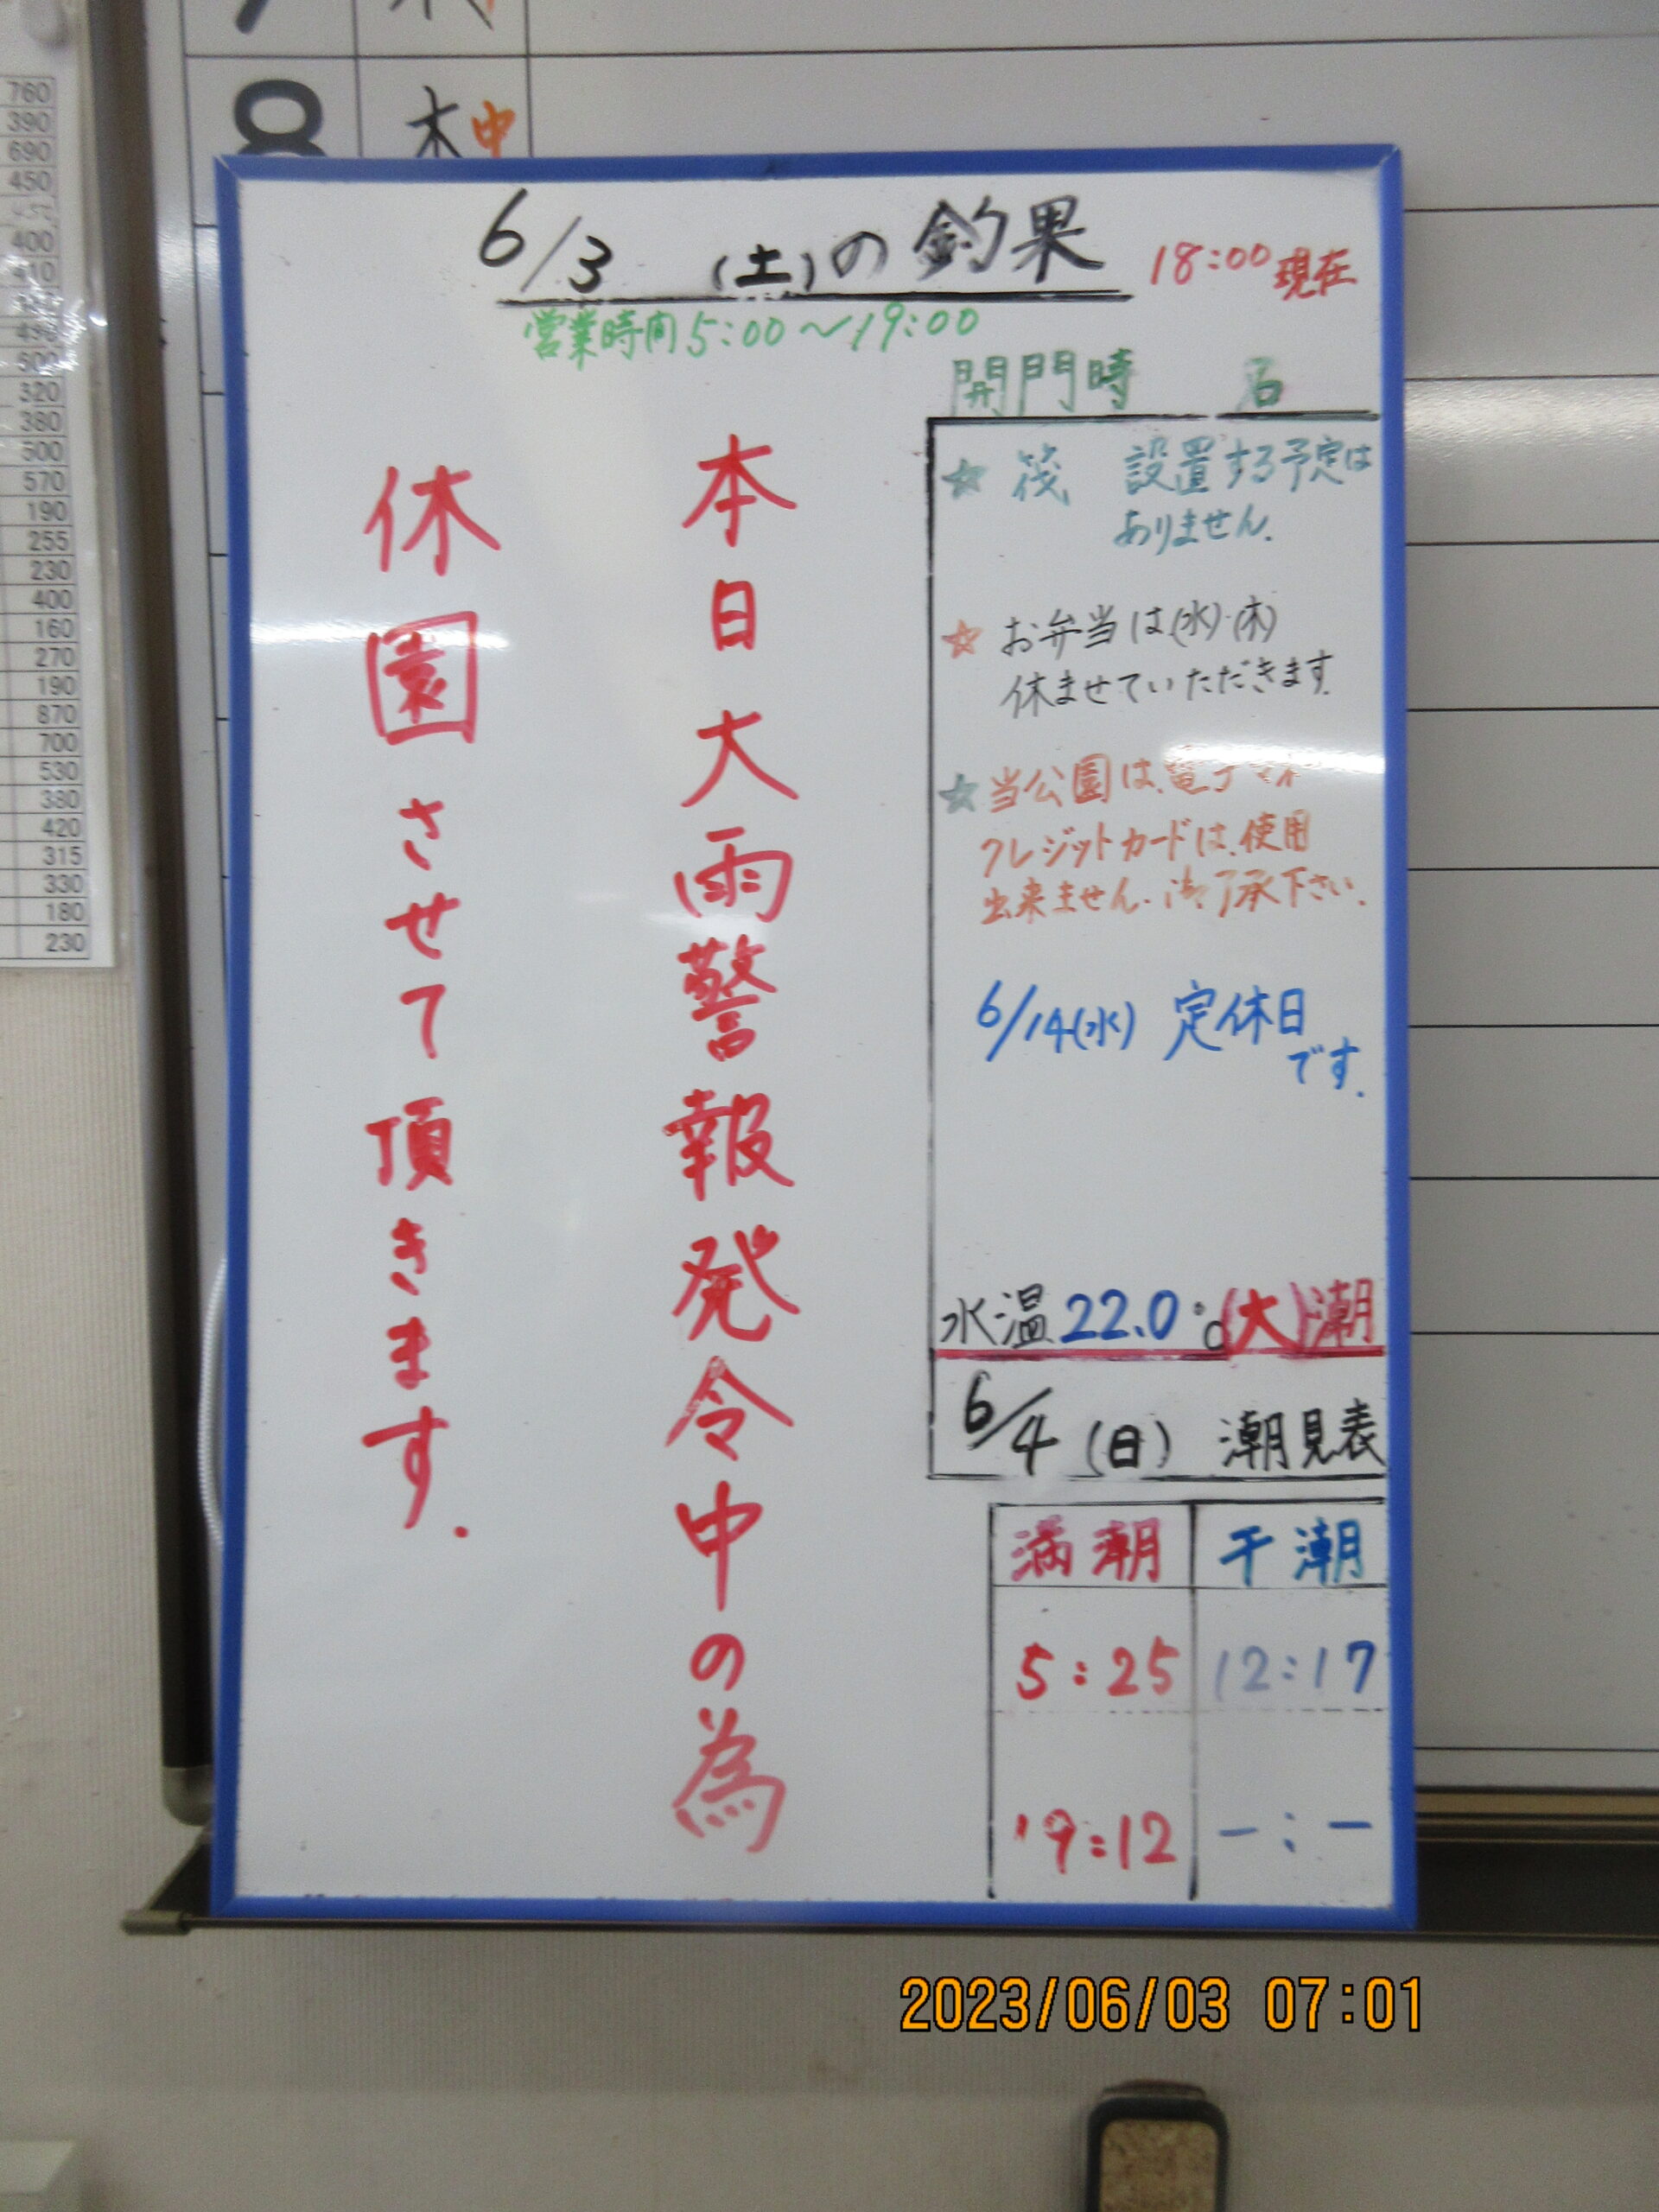 760
390
690
450
400
410
500
320
380
500
570
190
255
230
400
160
270
190
870
700
530
380
420
315
330
180
230
8 木 中
6/3 (土)の釣果 18:00現在
営業時間5:00～19:00
本日大雨警報発令中の為
休園させて頂きます.
開門時 名
☆ 筏 設置する予定は
ありません.
☆ お弁当は(水)・(木)
休ませていただきます.
☆ 当公園は、電子マネ
クレジットカードは、使用
出来ません.御了承下さい.
6/14(水) 定休日
です.
水温22.0℃(大)潮
6/4(日) 潮見表
満潮 干潮
5:25 12:17
19:12 -:-
2023/06/03 07:01